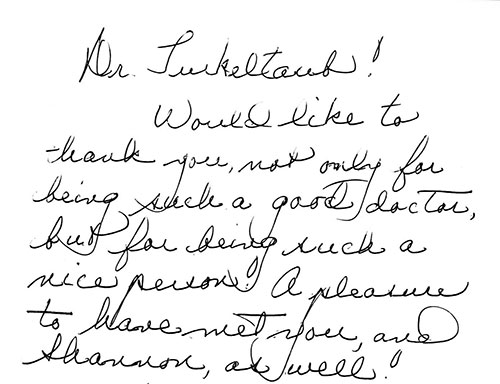 Dr. Turkeltaub!
Would like to
thank you, not only for
being such a good doctor,
but for being such a
nice person! A pleasure
to have met you, and
Shannon, as well!